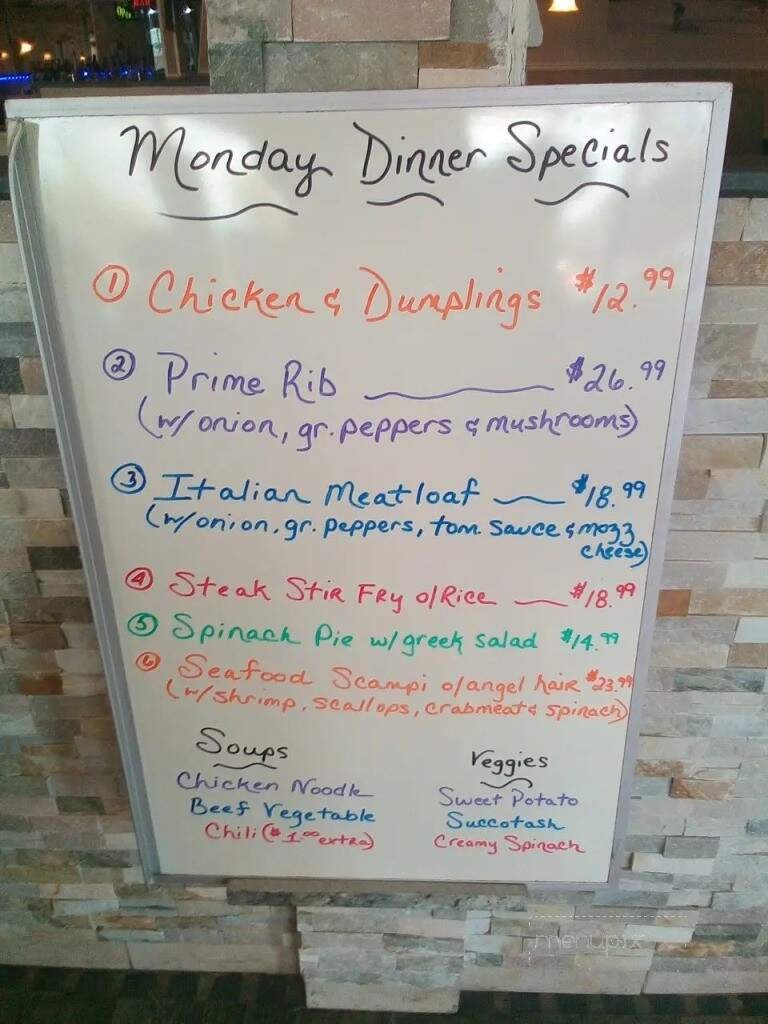 Monday Dinner Specials
① Chicken & Dumplings $12.99
② Prime Rib $26.99
(w/onion, gr. peppers & mushrooms)
③ Italian Meatloaf $18.99
(w/onion, gr. peppers, tom. sauce & mozz
cheese)
④ Steak Stir Fry o/Rice $18.99
⑤ Spinach Pie w/greek salad $14.99
⑥ Seafood Scampi o/angel hair $23.99
(w/shrimp, scallops, crabmeat & spinach)
Soups
Chicken Noodle
Beef Vegetable
Chili ($1.00 extra)
Veggies
Sweet Potato
Succotash
Creamy Spinach
menupix